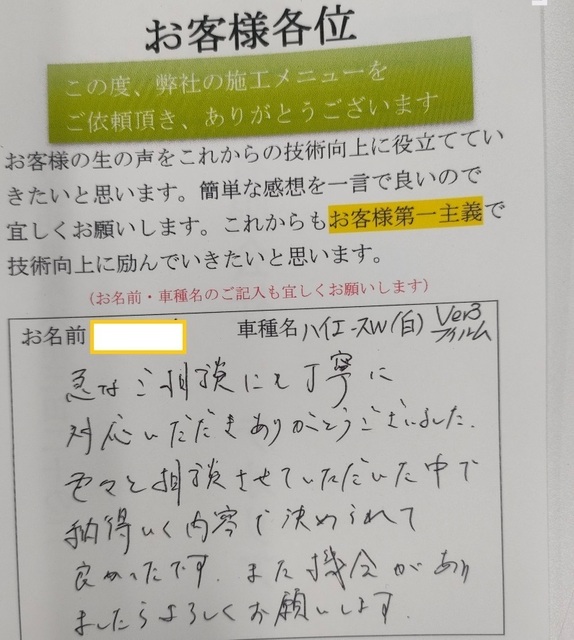 お客様各位
この度、弊社の施工メニューを
ご依頼頂き、ありがとうございます
お客様の生の声をこれからの技術向上に役立ててい
きたいと思います。簡単な感想を一言で良いので
宜しくお願いします。これからもお客様第一主義で
技術向上に励んでいきたいと思います。
(お名前・車種名のご記入も宜しくお願いします)
お名前 車種名 ハイエースW(白) Ver3 フィルム
急なご相談にも丁寧に
対応いただきありがとうございました.
色々と相談させていただいた中で
納得いく内容で決められて
良かったです. また機会があり
ましたらよろしくお願いします.